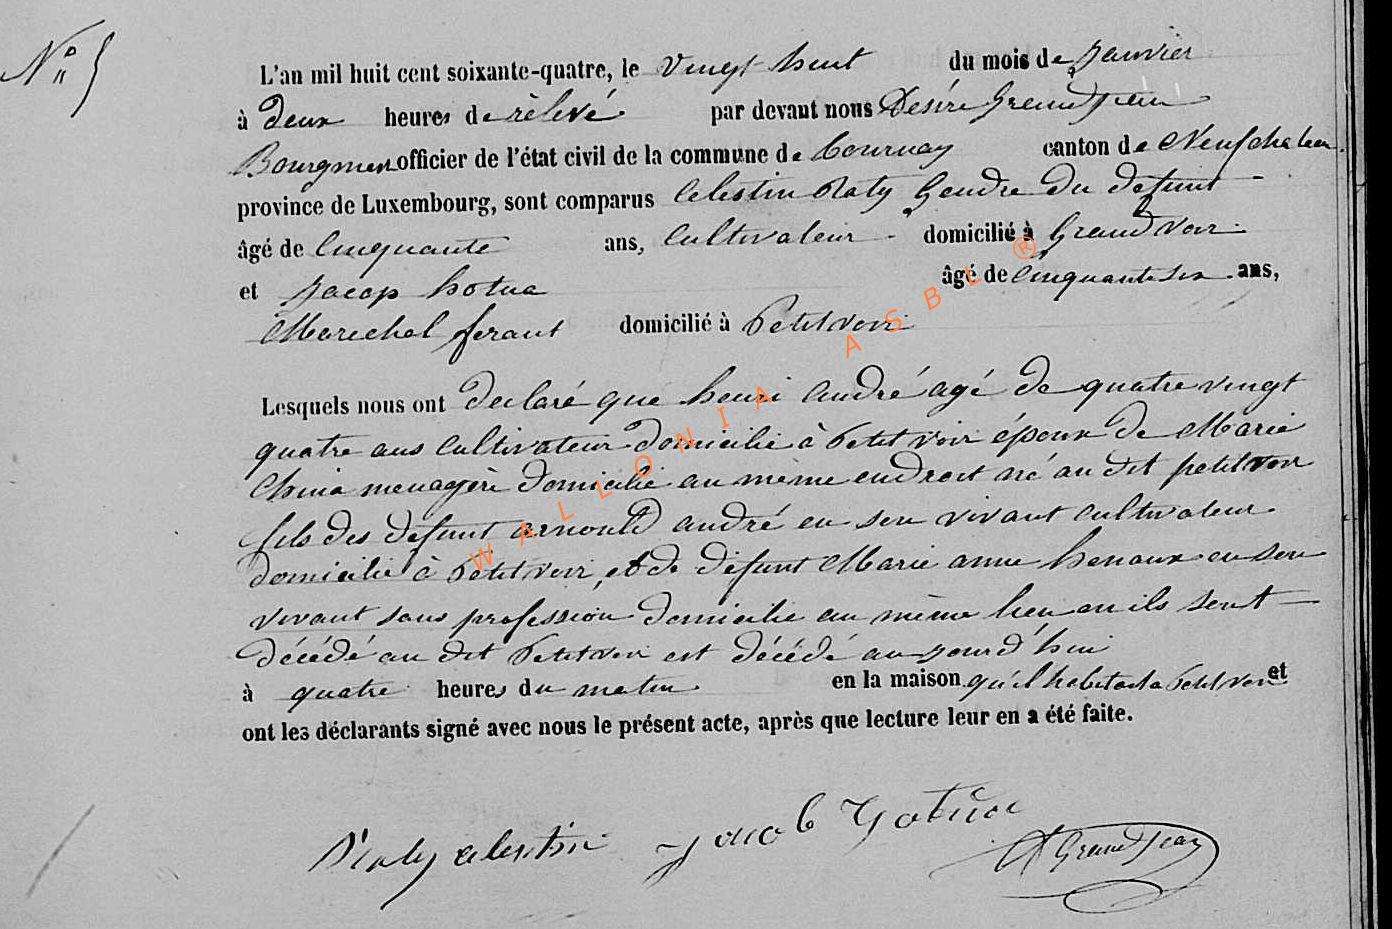 N° 5
L'an mil huit cent soixante-quatre, le vingt huit du mois de Janvier
à deux heures de rèlevé par devant nous Désiré Grandjean
Bourgmes officier de l'état civil de la commune de Tournay canton de Neufchateau
province de Luxembourg, sont comparus Celestin Raty Gendre du defunt
âgé de Cinquante ans, Cultivateur domicilié à Grandvoir
et Jacop hotua âgé de Cinquante six ans,
Marechal ferant domicilié à Petitvoir
Lesquels nous ont declaré que henri andré agé de quatre vingt
quatre ans Cultivateur domicilié à Petitvoir époux de Marie
China menagère domicilié au même endroit né au dit petitvoir
fils des defunt arnould andré en son vivant cultivateur
domicilié à Petitvoir, et de défunt Marie anne henaux en son
vivant sans profession domicilié au même lieu ou ils sont
décédé au dit Petitvoir est décédé aujourd'hui
à quatre heures du matin en la maison qu'il habitait a Petitvoir et
ont les déclarants signé avec nous le présent acte, après que lecture leur en a été faite.
celestin Jacob
DGrandJean
WALLONIA ASBL ®